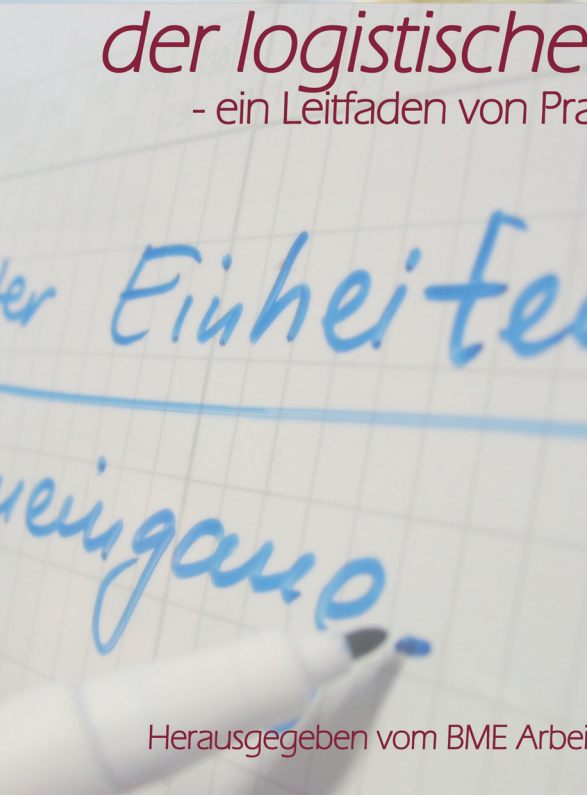 der logistische
- ein Leitfaden von Pra
er Einheite
neingang
Herausgegeben vom BME Arbei